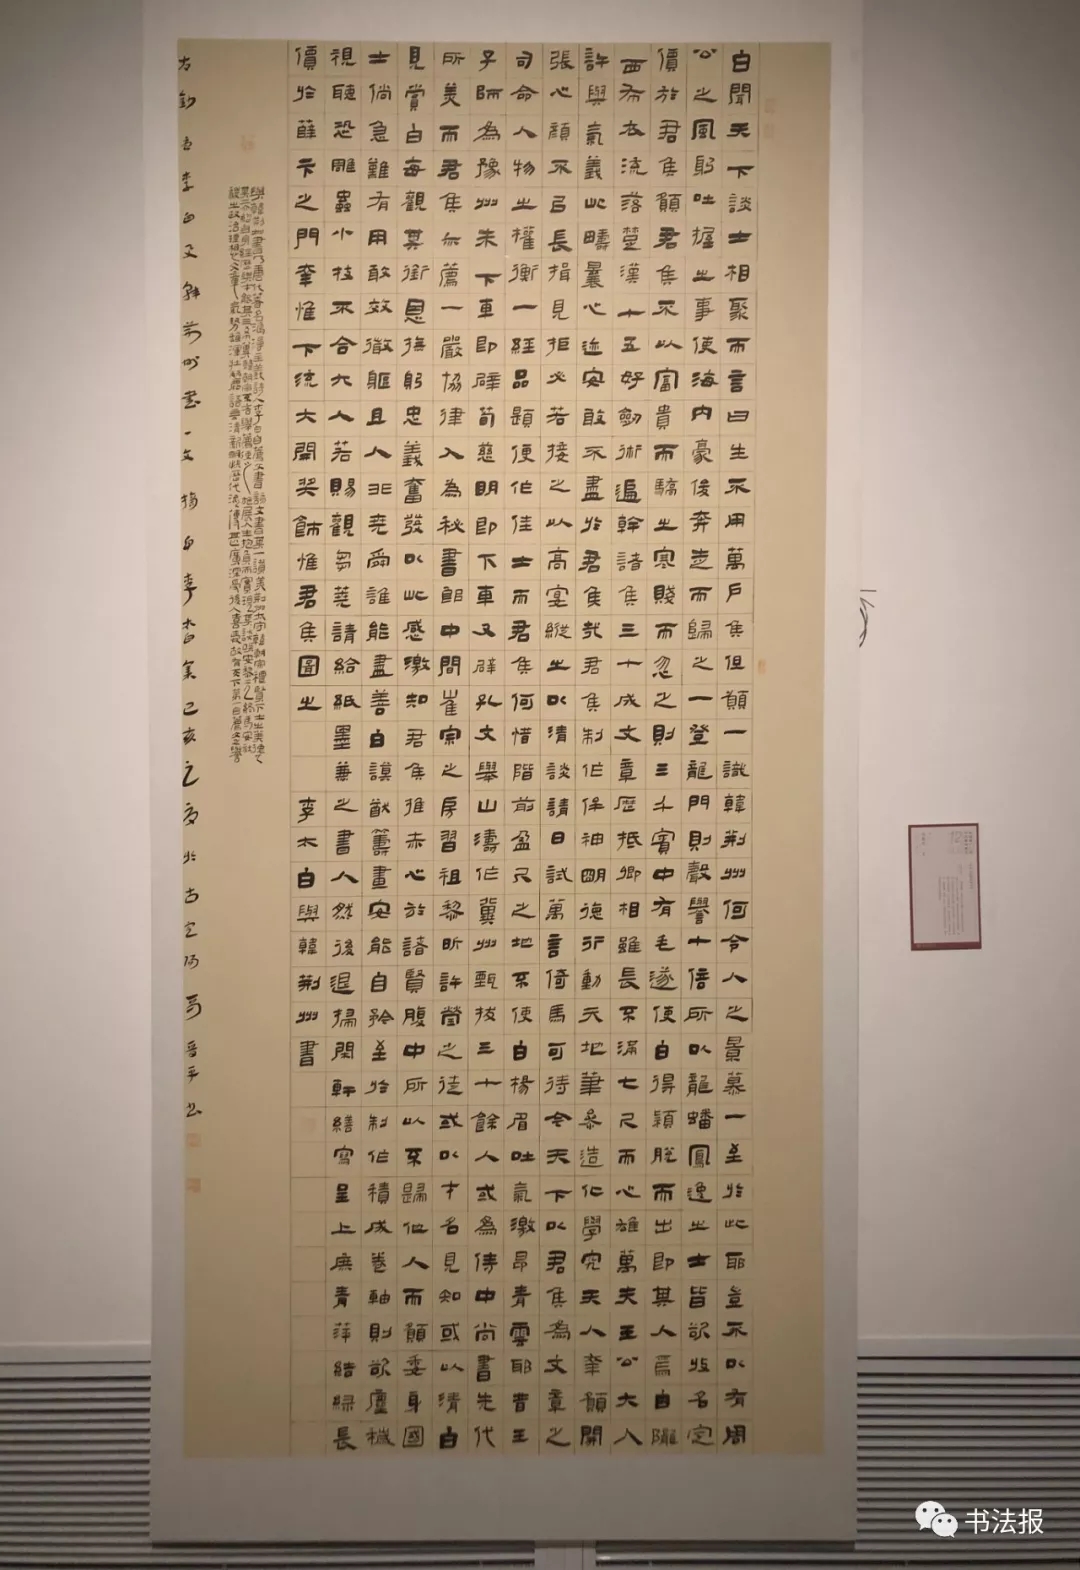 白聞天下談士相聚而言曰生不用萬戶侯但願一識韓荊州何令人之景慕一至於此耶豈不以有周
公之風躬吐握之事使海內豪俊奔走而歸之一登龍門則聲譽十倍所以龍蟠鳳逸之士皆欲收名定
價於君侯願君侯不以富貴而驕之寒賤而忽之則三千賓中有毛遂使白得穎脫而出即其人焉白隴
西布衣流落楚漢十五好劍術遍幹諸侯三十成文章歷抵卿相雖長不滿七尺而心雄萬夫王公大人
許與氣義此疇曩心迹安敢不盡於君侯哉君侯制作侔神明德行動天地筆參造化學究天人幸願開
張心顏不以長揖見拒必若接之以高宴縱之以清談請日試萬言倚馬可待今天下以君侯為文章之
司命人物之權衡一經品題便作佳士而君侯何惜階前盈尺之地不使白楊眉吐氣激昂青雲耶昔王
子師為豫州未下車即辟荀慈明即下車又辟孔文舉山濤作冀州甄拔三十餘人或為侍中尚書先代
所美而君侯亦薦一嚴協律入為秘書郎中間崔宗之房習祖黎昕許瑩之徒或以才名見知或以清白
見賞白每觀其銜恩撫躬忠義奮發以此感激知君侯推赤心於諸賢腹中所以不歸他人而願委身國
士倘急難有用敢效微軀且人非堯舜誰能盡善白謨猷籌畫安能自矜至於制作積成卷軸則欲塵穢
視聽恐雕蟲小技不合大人若賜觀芻蕘請給紙墨兼之書人然後退掃閑軒繕寫呈上庶青萍結綠長
價於薛卞之門幸惟下流大開獎飾惟君侯圖之 李太白與韓荊州書
书法报